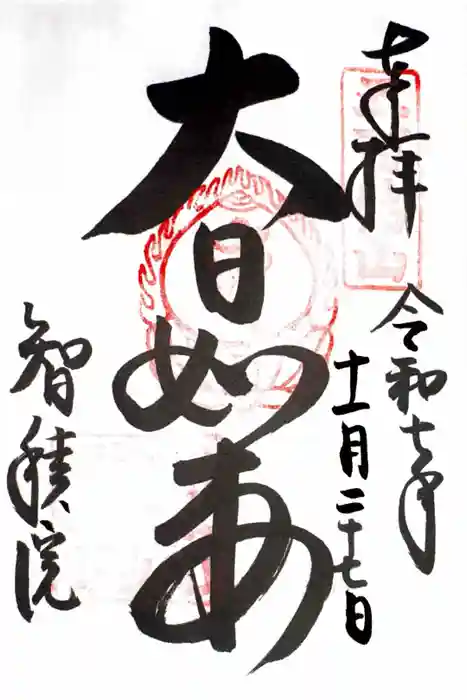 奉拝
令和七年
十一月二十七日
大日如来
智積院